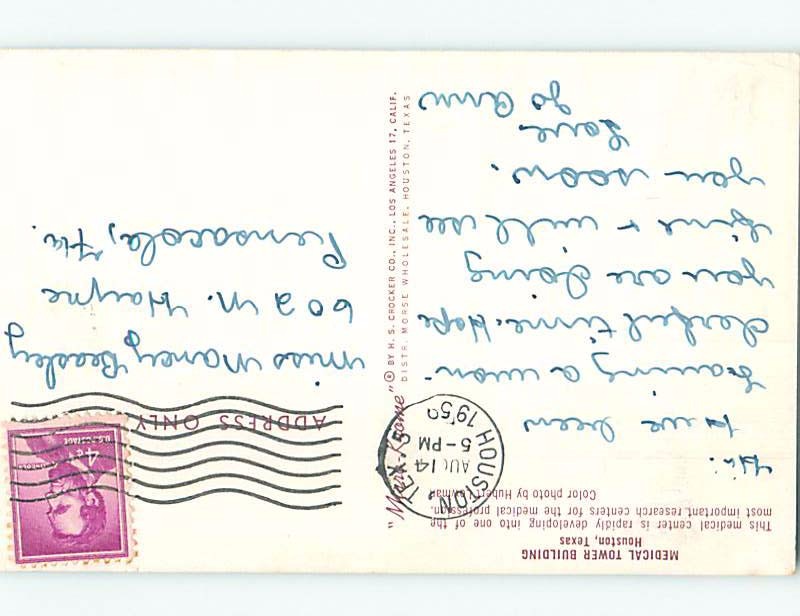 MEDICAL TOWER BUILDING
Houston, Texas
This medical center is rapidly developing into one of the
most important research centers for the medical profession.
Color photo by Hubert Lowman
Hi:
Have been
having a won-
derful time. Hope
you are doing
fine & will see
you soon.
Love
Jo Ann
"Mark-Krome" ® BY H. S. CROCKER CO., INC., LOS ANGELES 17, CALIF.
DISTR. MORSE WHOLESALE, HOUSTON, TEXAS
HOUSTON TEX.
AUG 14
5-PM
4¢
U.S. POSTAGE
LINCOLN
ADDRESS ONLY
Miss Nancy Beasley
602 N. Hayne
Pensacola, Fla.